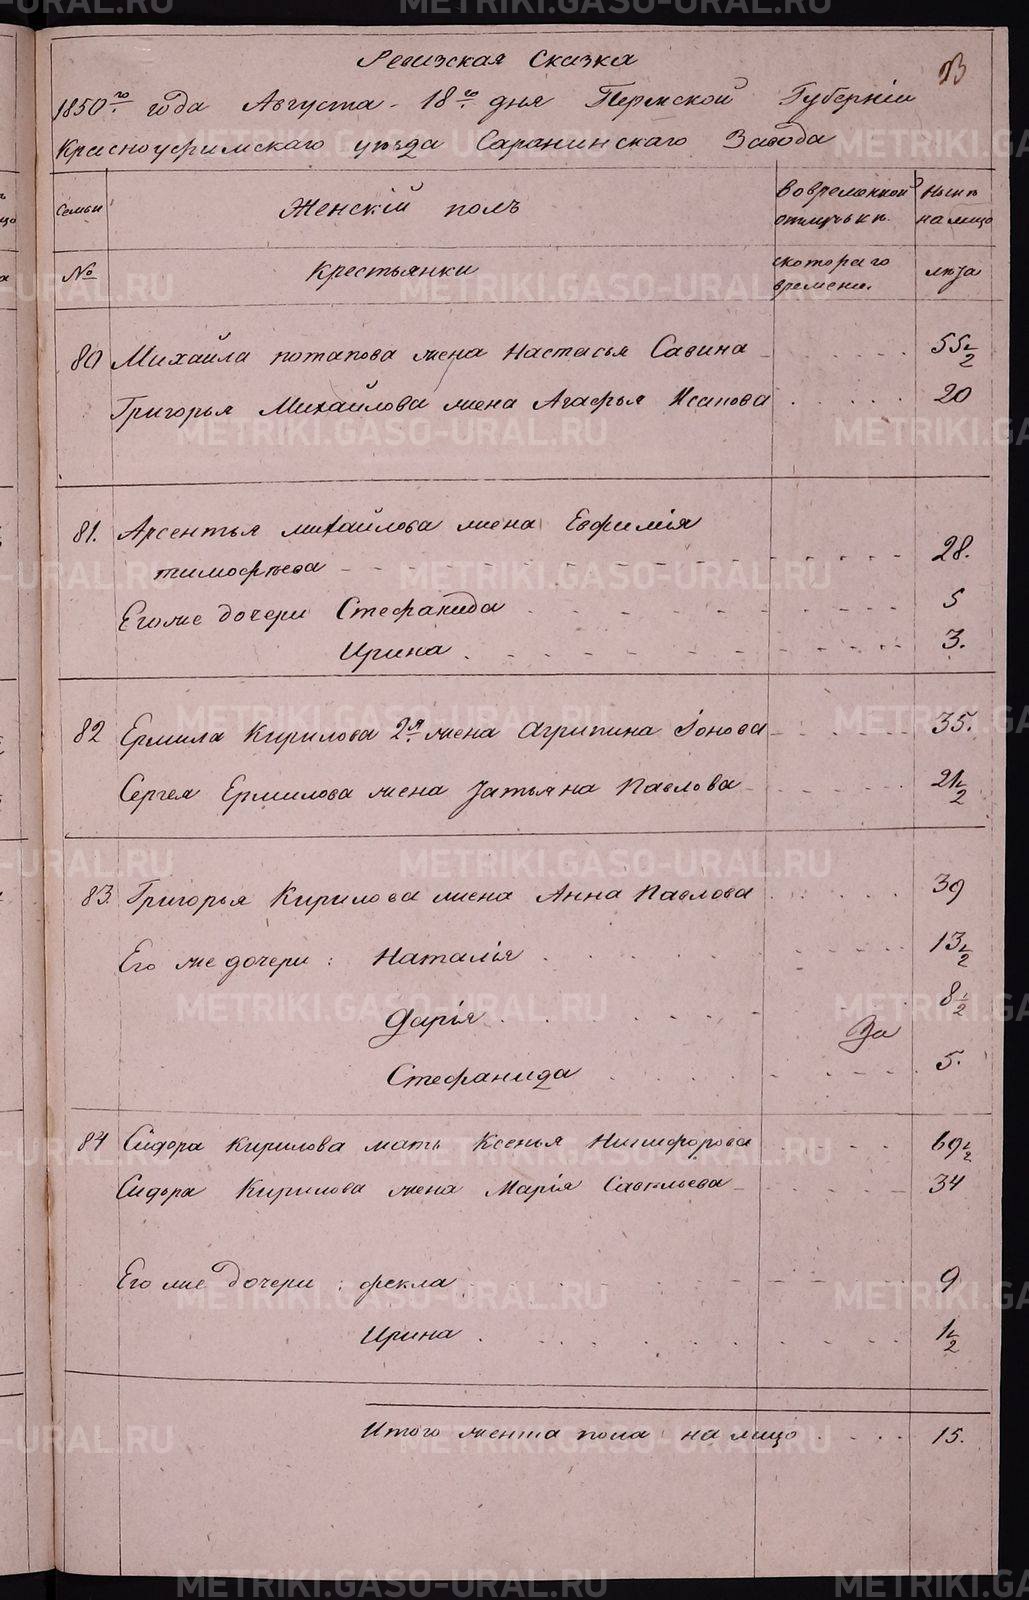 Ревизская Сказка
23
1850го года Августа 18го дня Пермской Губернiи
Красноуфимскаго уѣзда Саранинскаго Завода
Семьи Женскiй полъ Вовременной отлучькѣ. Нынѣ на лицо
№ Крестьянки скотораго времени. лѣта
80 Михайла потапова жена Настасья Савина 55 1/2
Григорья Михайлова жена Агафья Исакова 20
81. Арсентья михайлова жена Евфимiя
тимофѣева 28.
Егоже дочери Стефанида 5
Ирина 3.
82 Ермила Кирилова 2я жена Агрипина Iонова 35.
Сергея Ермилова жена Татьяна Павлова 21 1/2
83. Григорья Кирилова жена Анна Павлова 39
Его же дочери: Наталiя 13 1/2
Дарiя 8 1/2
За
Стефанида 5.
84 Сидора Кирилова мать Ксенья Никифорова 69 1/2
Сидора Кирилова жена Марiя Савельева 34
Его же дочери: фекла 9
Ирина 1/2
Итого женска пола на лицо 15.
METRIKI.GASO-URAL.RU